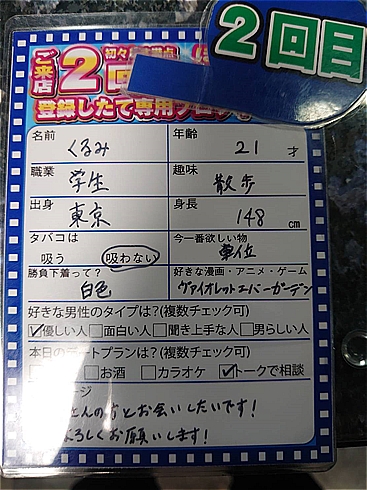 2回目
ご来店
2
登録したて専用プロフ
名前 くるみ 年齢 21才
職業 学生 趣味 散歩
出身 東京 身長 148cm
タバコは 吸う 吸わない 今一番欲しい物 単位
勝負下着って？ 白色 好きな漫画・アニメ・ゲーム ヴァイオレットエバーガーデン
好きな男性のタイプは？(複数チェック可)
優しい人 面白い人 聞き上手な人 男らしい人
本日のデートプランは？(複数チェック可)
お酒 カラオケ トークで相談
さんの方とお会いしたいです！
よろしくお願いします！